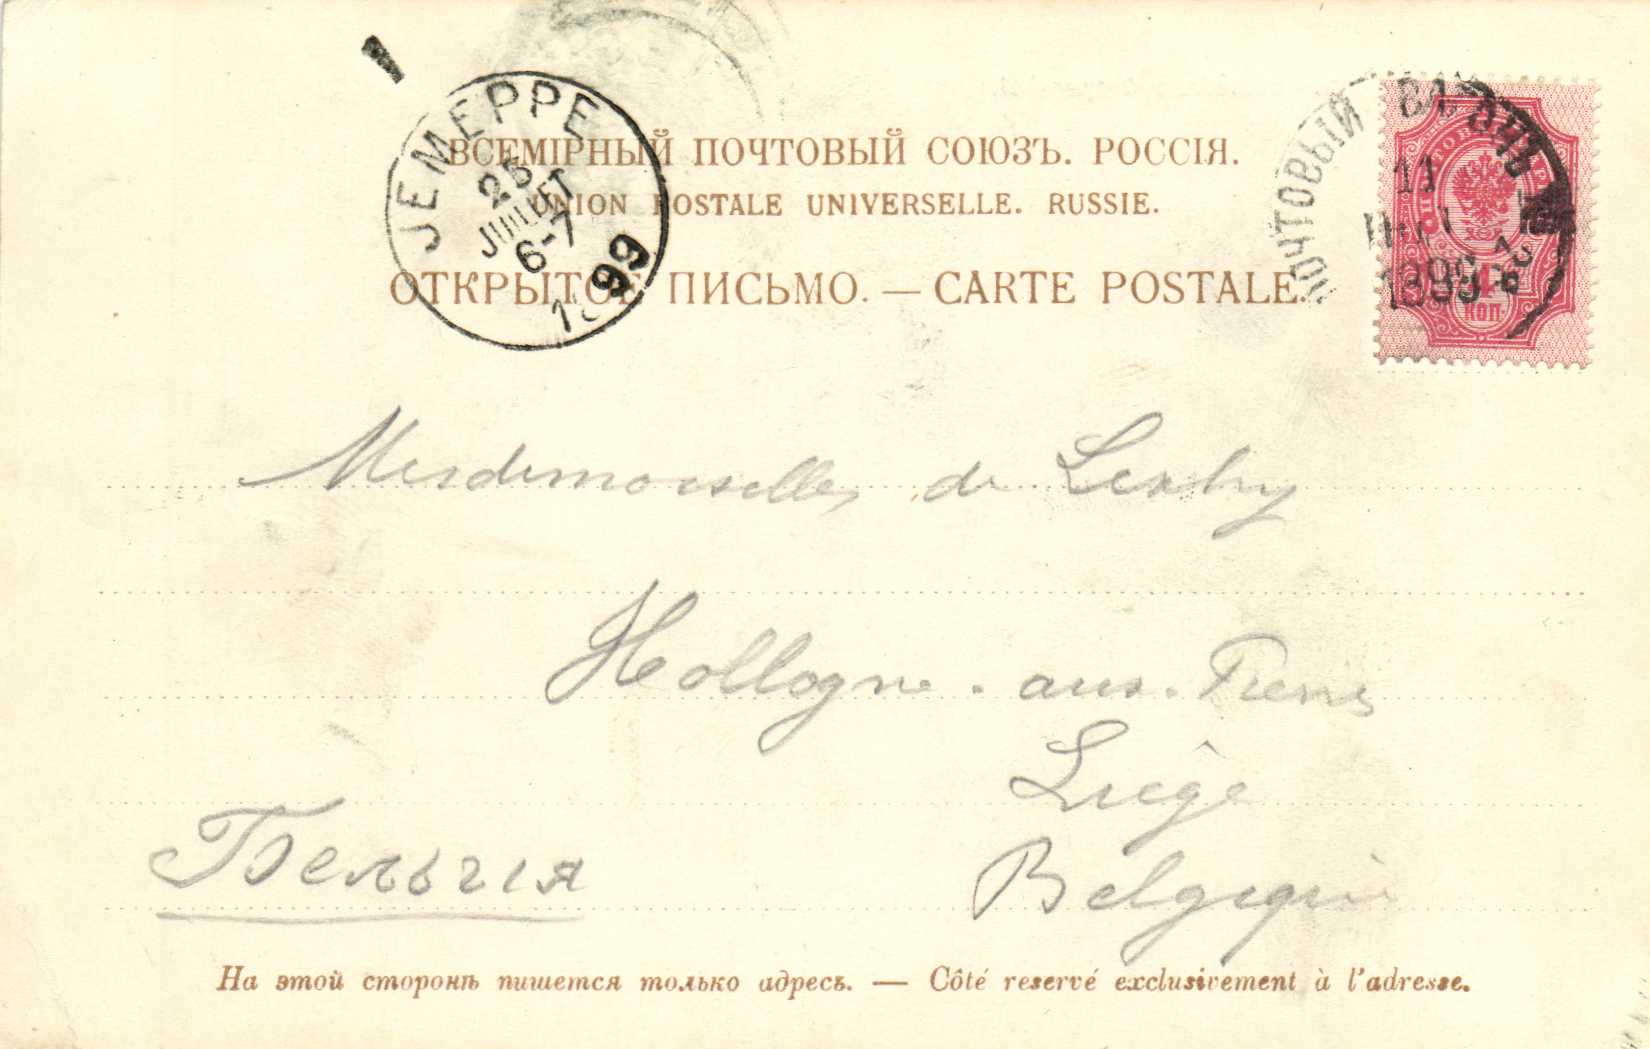 JEMEPPE
25
JUILLET
6-7
99
ВСЕМІРНЫЙ ПОЧТОВЫЙ СОЮЗЪ. РОССІЯ.
UNION POSTALE UNIVERSELLE. RUSSIE.
ОТКРЫТОЕ ПИСЬМО. — CARTE POSTALE.
ПОЧТОВЫЙ ВАГОНЪ
11
1899
4
КОП.
Mesdemoiselles de
Hollogne-aux-Pierres
Liège
Бельгія
Belgique
На этой сторонѣ пишется только адресъ. — Côté reservé exclusivement à l'adresse.